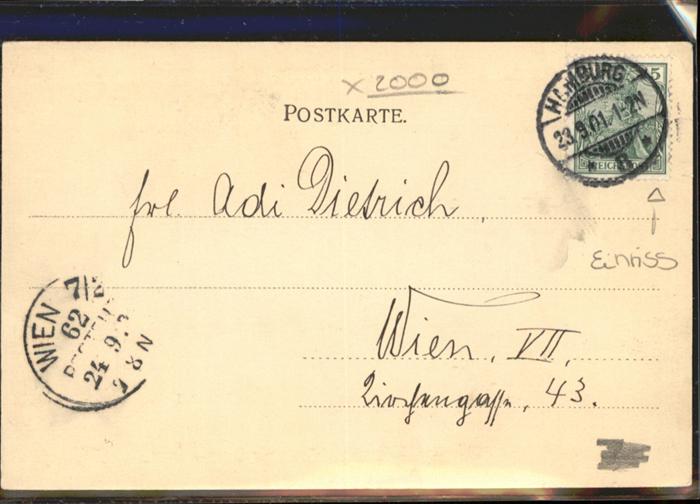 x 2000
POSTKARTE.
5
HAMBURG
23.9.01. 1-2N
REICHSPOST
Frl. Adi Dietrich,
Einriss
WIEN 7/2
62
BESTELLT
24 9
8 N
Wien, VII,
Kirchengasse, 43.